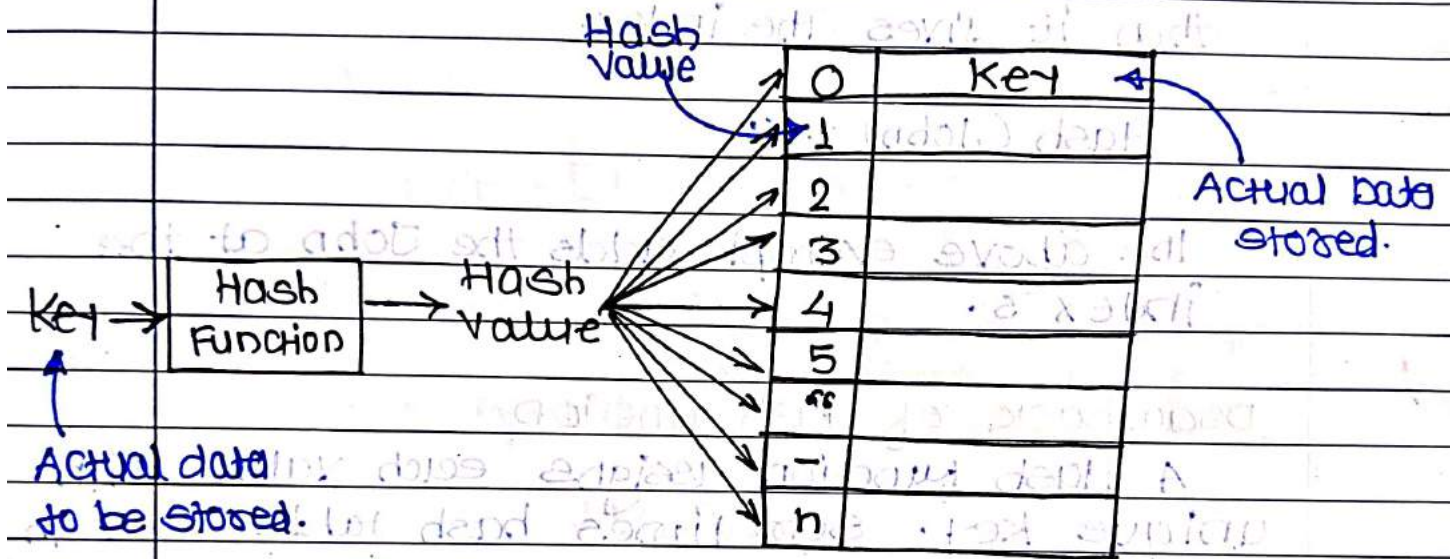 Hash
Value
0 Key
1
2
3
4
5
"
-
n
Actual Data
stored.
Key
Hash
Function
Hash
Value
Actual data
to be stored.